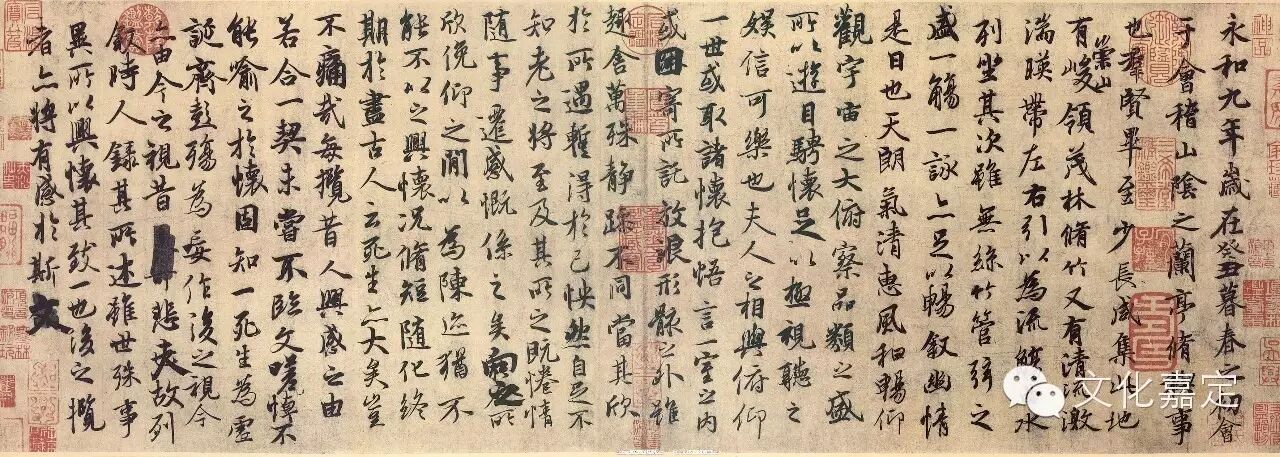 永和九年歲在癸丑暮春之初會
于會稽山陰之蘭亭脩禊事
也羣賢畢至少長咸集此地
有崇山峻領茂林脩竹又有清流激
湍暎帶左右引以為流觴曲水
列坐其次雖無絲竹管弦之
盛一觴一詠亦足以暢敘幽情
是日也天朗氣清惠風和暢仰
觀宇宙之大俯察品類之盛
所以遊目騁懷足以極視聽之
娛信可樂也夫人之相與俯仰
一世或取諸懷抱悟言一室之內
或因寄所託放浪形骸之外雖
趣舍萬殊靜躁不同當其欣
於所遇暫得於己怏然自足不
知老之將至及其所之既惓情
隨事遷感慨係之矣向之所
欣俛仰之閒以為陳迹猶不
能不以之興懷況脩短隨化終
期於盡古人云死生亦大矣豈
不痛哉每攬昔人興感之由
若合一契未嘗不臨文嗟悼不
能喻之於懷固知一死生為虛
誕齊彭殤為妄作後之視今
亦由今之視昔悲夫故列
敘時人錄其所述雖世殊事
異所以興懷其致一也後之攬
者亦將有感於斯文
文化嘉定